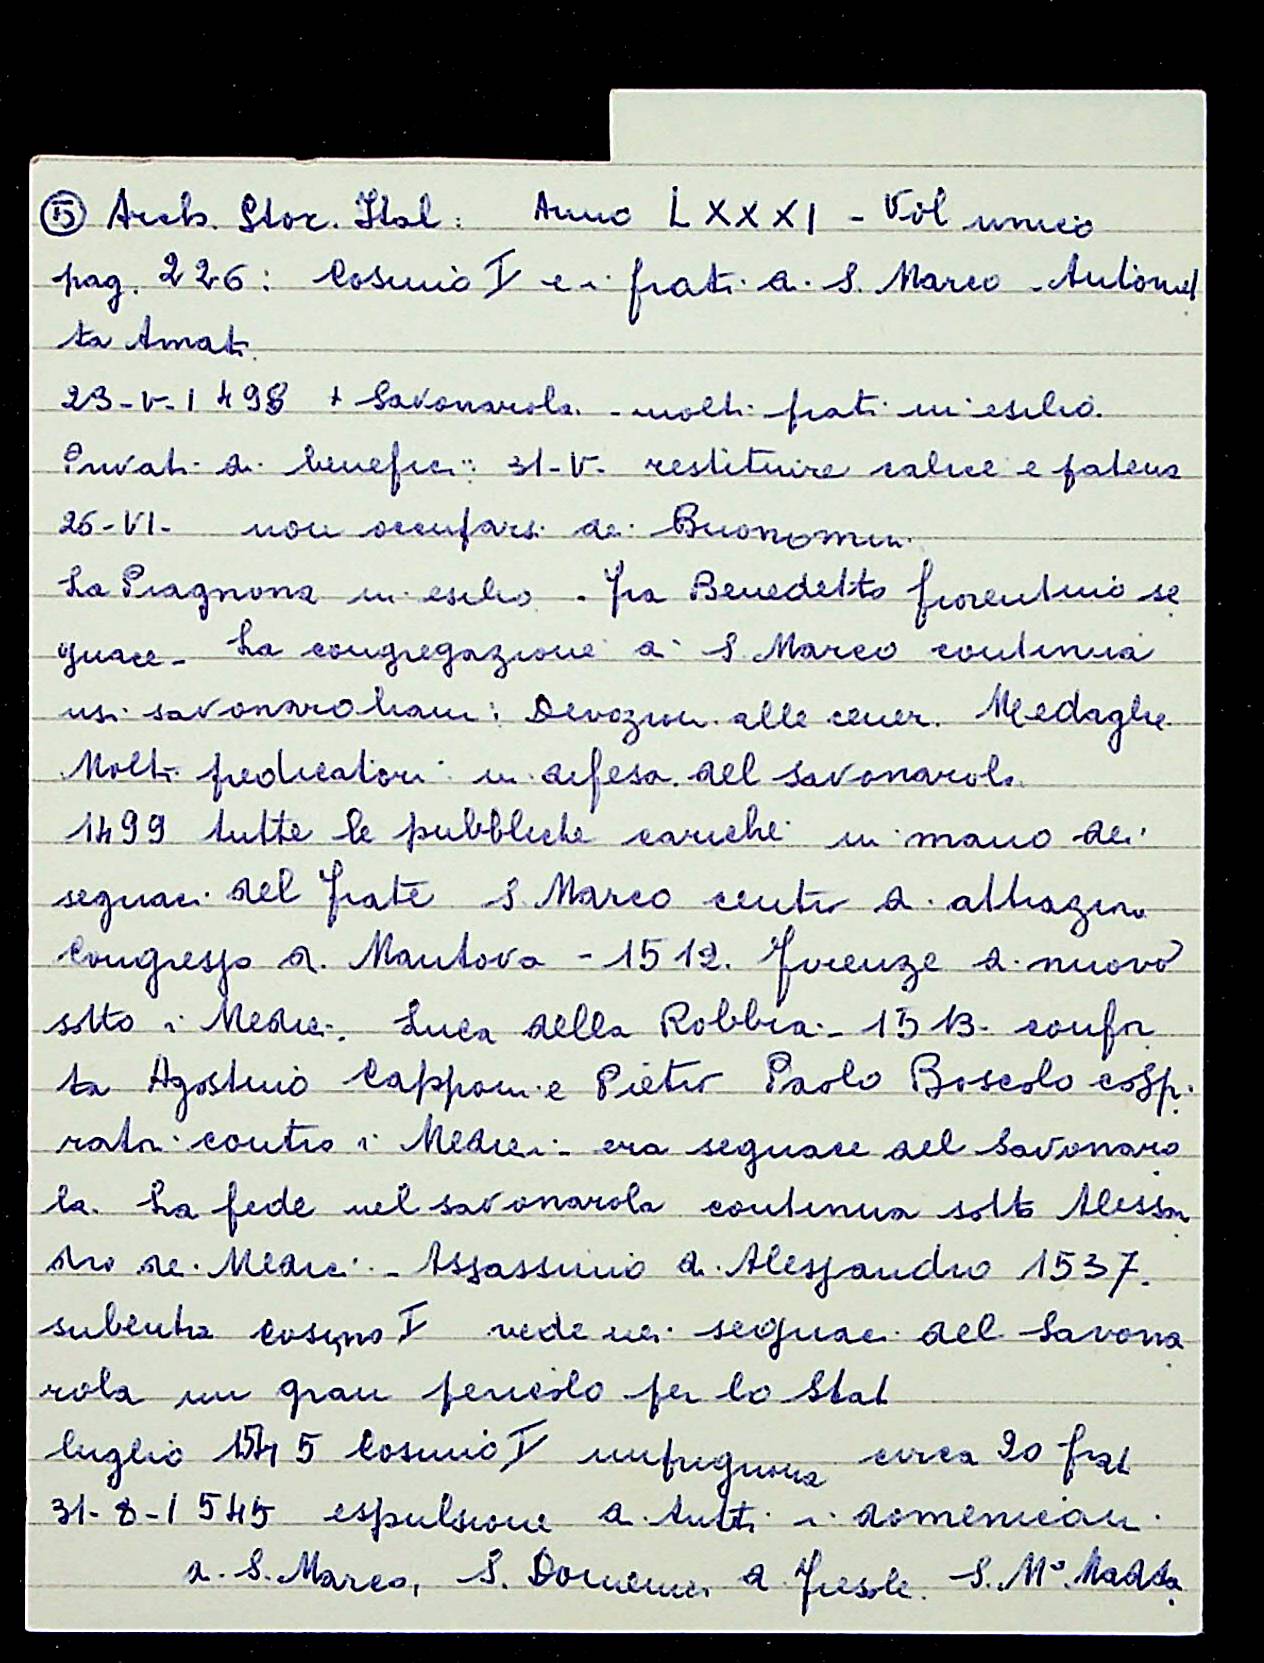 ⑮ Arch. Stor. Ital: Anno LXXXI - Vol unico
pag. 226: Cosimo I e i frati di S. Marco - Antoniet
ta Amati
23-V-1498 + Savonarola - molti frati in esilio.
Privati di benefici: 31-V- restituire calice e patena
26-VI- non occuparsi dei Buonomini.
La Piagnona in esilio. Fra Benedetto fiorentino se
guace - La congregazione di S. Marco continua
usi savonaroliani: Devozioni alle ceneri. Medaglie
Molti predicatori in difesa del Savonarola
1499 tutte le pubbliche cariche in mano dei
seguaci del frate S. Marco centro di attrazione
Congresso di Mantova - 1512. Firenze di nuovo
sotto i Medici. Luca della Robbia - 1513 - confor
ta Agostino Capponi e Pietro Paolo Boscolo cospi
ratori contro i Medici - era seguace del Savonaro
la. La fede nel savonarola continua sotto Alessan
dro de' Medici - Assassinio di Alessandro 1537.
subentra Cosimo I vede nei seguaci del Savona
rola un gran pericolo per lo Stat
luglio 1545 Cosimo I imprigiona circa 20 frat
31-8-1545 espulsione di tutti i domenicani
di S. Marco, S. Domenico di Fiesole. S. Mª. Madda